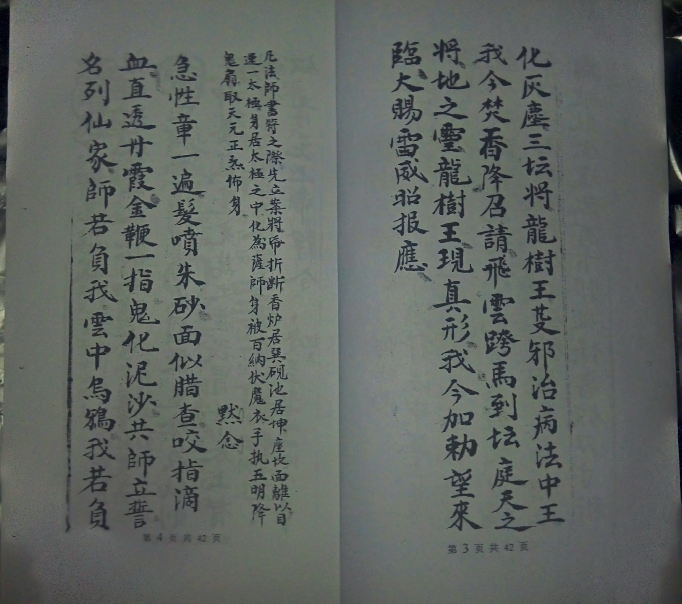 化灰塵三坛将龍樹王芟邪治病法中王
我今焚香降召請飛雲跨馬到坛庭天之
将地之靈龍樹王現真形我今加勅望來
臨大賜雷威昭报應
第 3 页 共 42 页
凡法師書符之際先立案将帝折断香炉居巽硯池居坤座坎面離以目
運一太極身居太極之中化為薩師身被百納伏魔衣手执五明降
鬼扇取天元正炁佈身
默念
急性章一遍髮噴朱砂面似腊查咬指滴
血直透丹霞金鞭一指鬼化泥沙共師立誓
名列仙家師若負我雲中烏鴉我若負
第 4 页 共 42 页